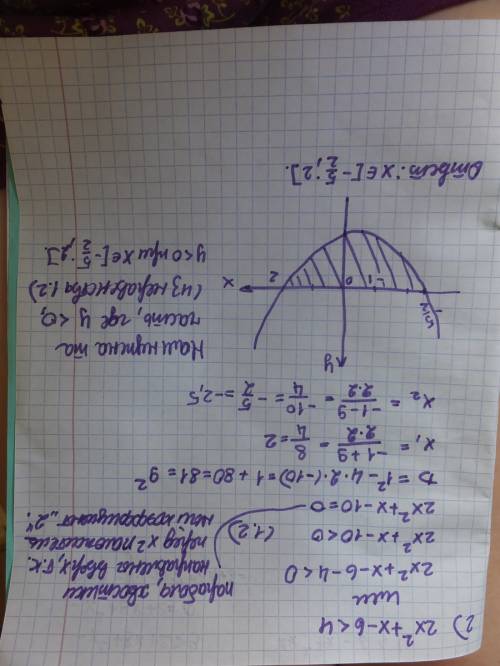 2) 2x²+x-6<4
или
2x²+x-6-4<0
2x²+x-10<0 (1.2)
2x²+x-10=0
парабола, хвостики
направлена вверх, т.к.
перед x² положитель
ный коэффициент „2“.
D = 1²-4·2·(-10) = 1+80=81=9²
x₁ = (-1+9)/(2·2) = 8/4 = 2
x₂ = (-1-9)/(2·2) = -10/4 = -5/2 = -2,5
y
-5/2 -1 0 2 x
Нам нужна та
часть, где y<0,
(из неравенства 1.2)
y<0 при x∈[-5/2; 2].
Ответ: x∈[-5/2; 2].